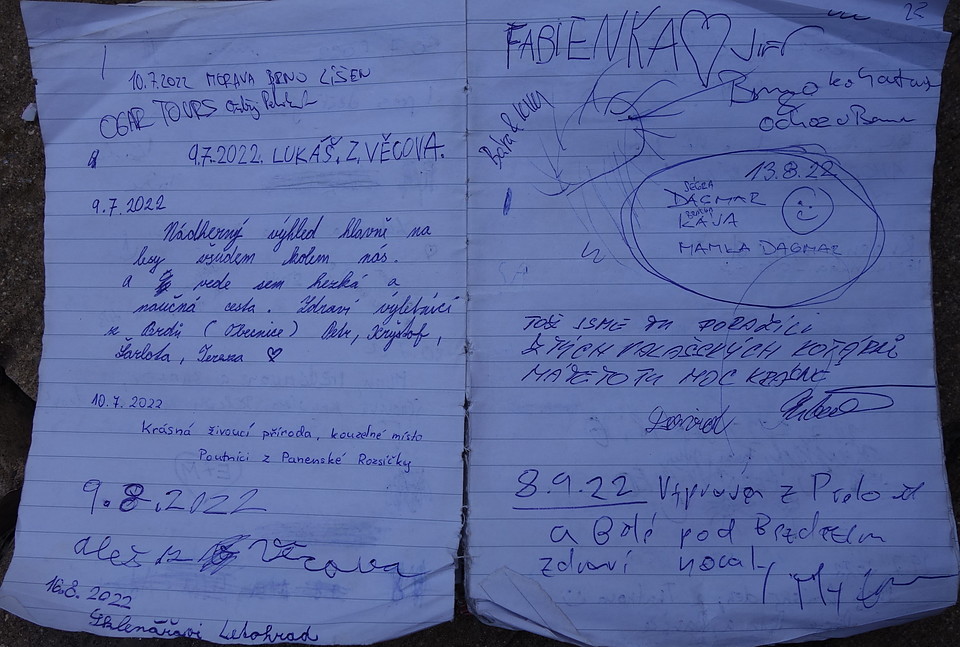 10.7.2022 MORAVA BRNO LÍŠEŇ
OGAR TOURS
9.7.2022. LUKÁŠ. Z. VĚCOVA.
9.7.2022
Nádherný výhled hlavně na
lesy všudem kolem nás.
a vede sem hezká a
naučná cesta. Zdraví výletníci
z Brdů (Obecnice) Petr, Kryštof,
Šarlota, Tereza ♡
10.7.2022
Krásná živoucí příroda, kouzelné místo
Poutníci z Panenské Rozsičky
9.8.2022
aleš z Věcova
16.8.2022
Sklenářovi Letohrad
22
FABIENKA ♡ JIŘÍ
Bára & Kuky
13.8.22
SÉGRA
DAGMAR
BRÁCHA
KÁJA
MAMKA DAGMAR
TOŽ JSME TU DORAZILI
Z TÝCH VALAŠSKÝCH KOTÁRŮ
MÁTE TO TU MOC KRÁSNÉ
David
8.9.22 Výprava z
a Bělé pod Bezdězem
zdraví